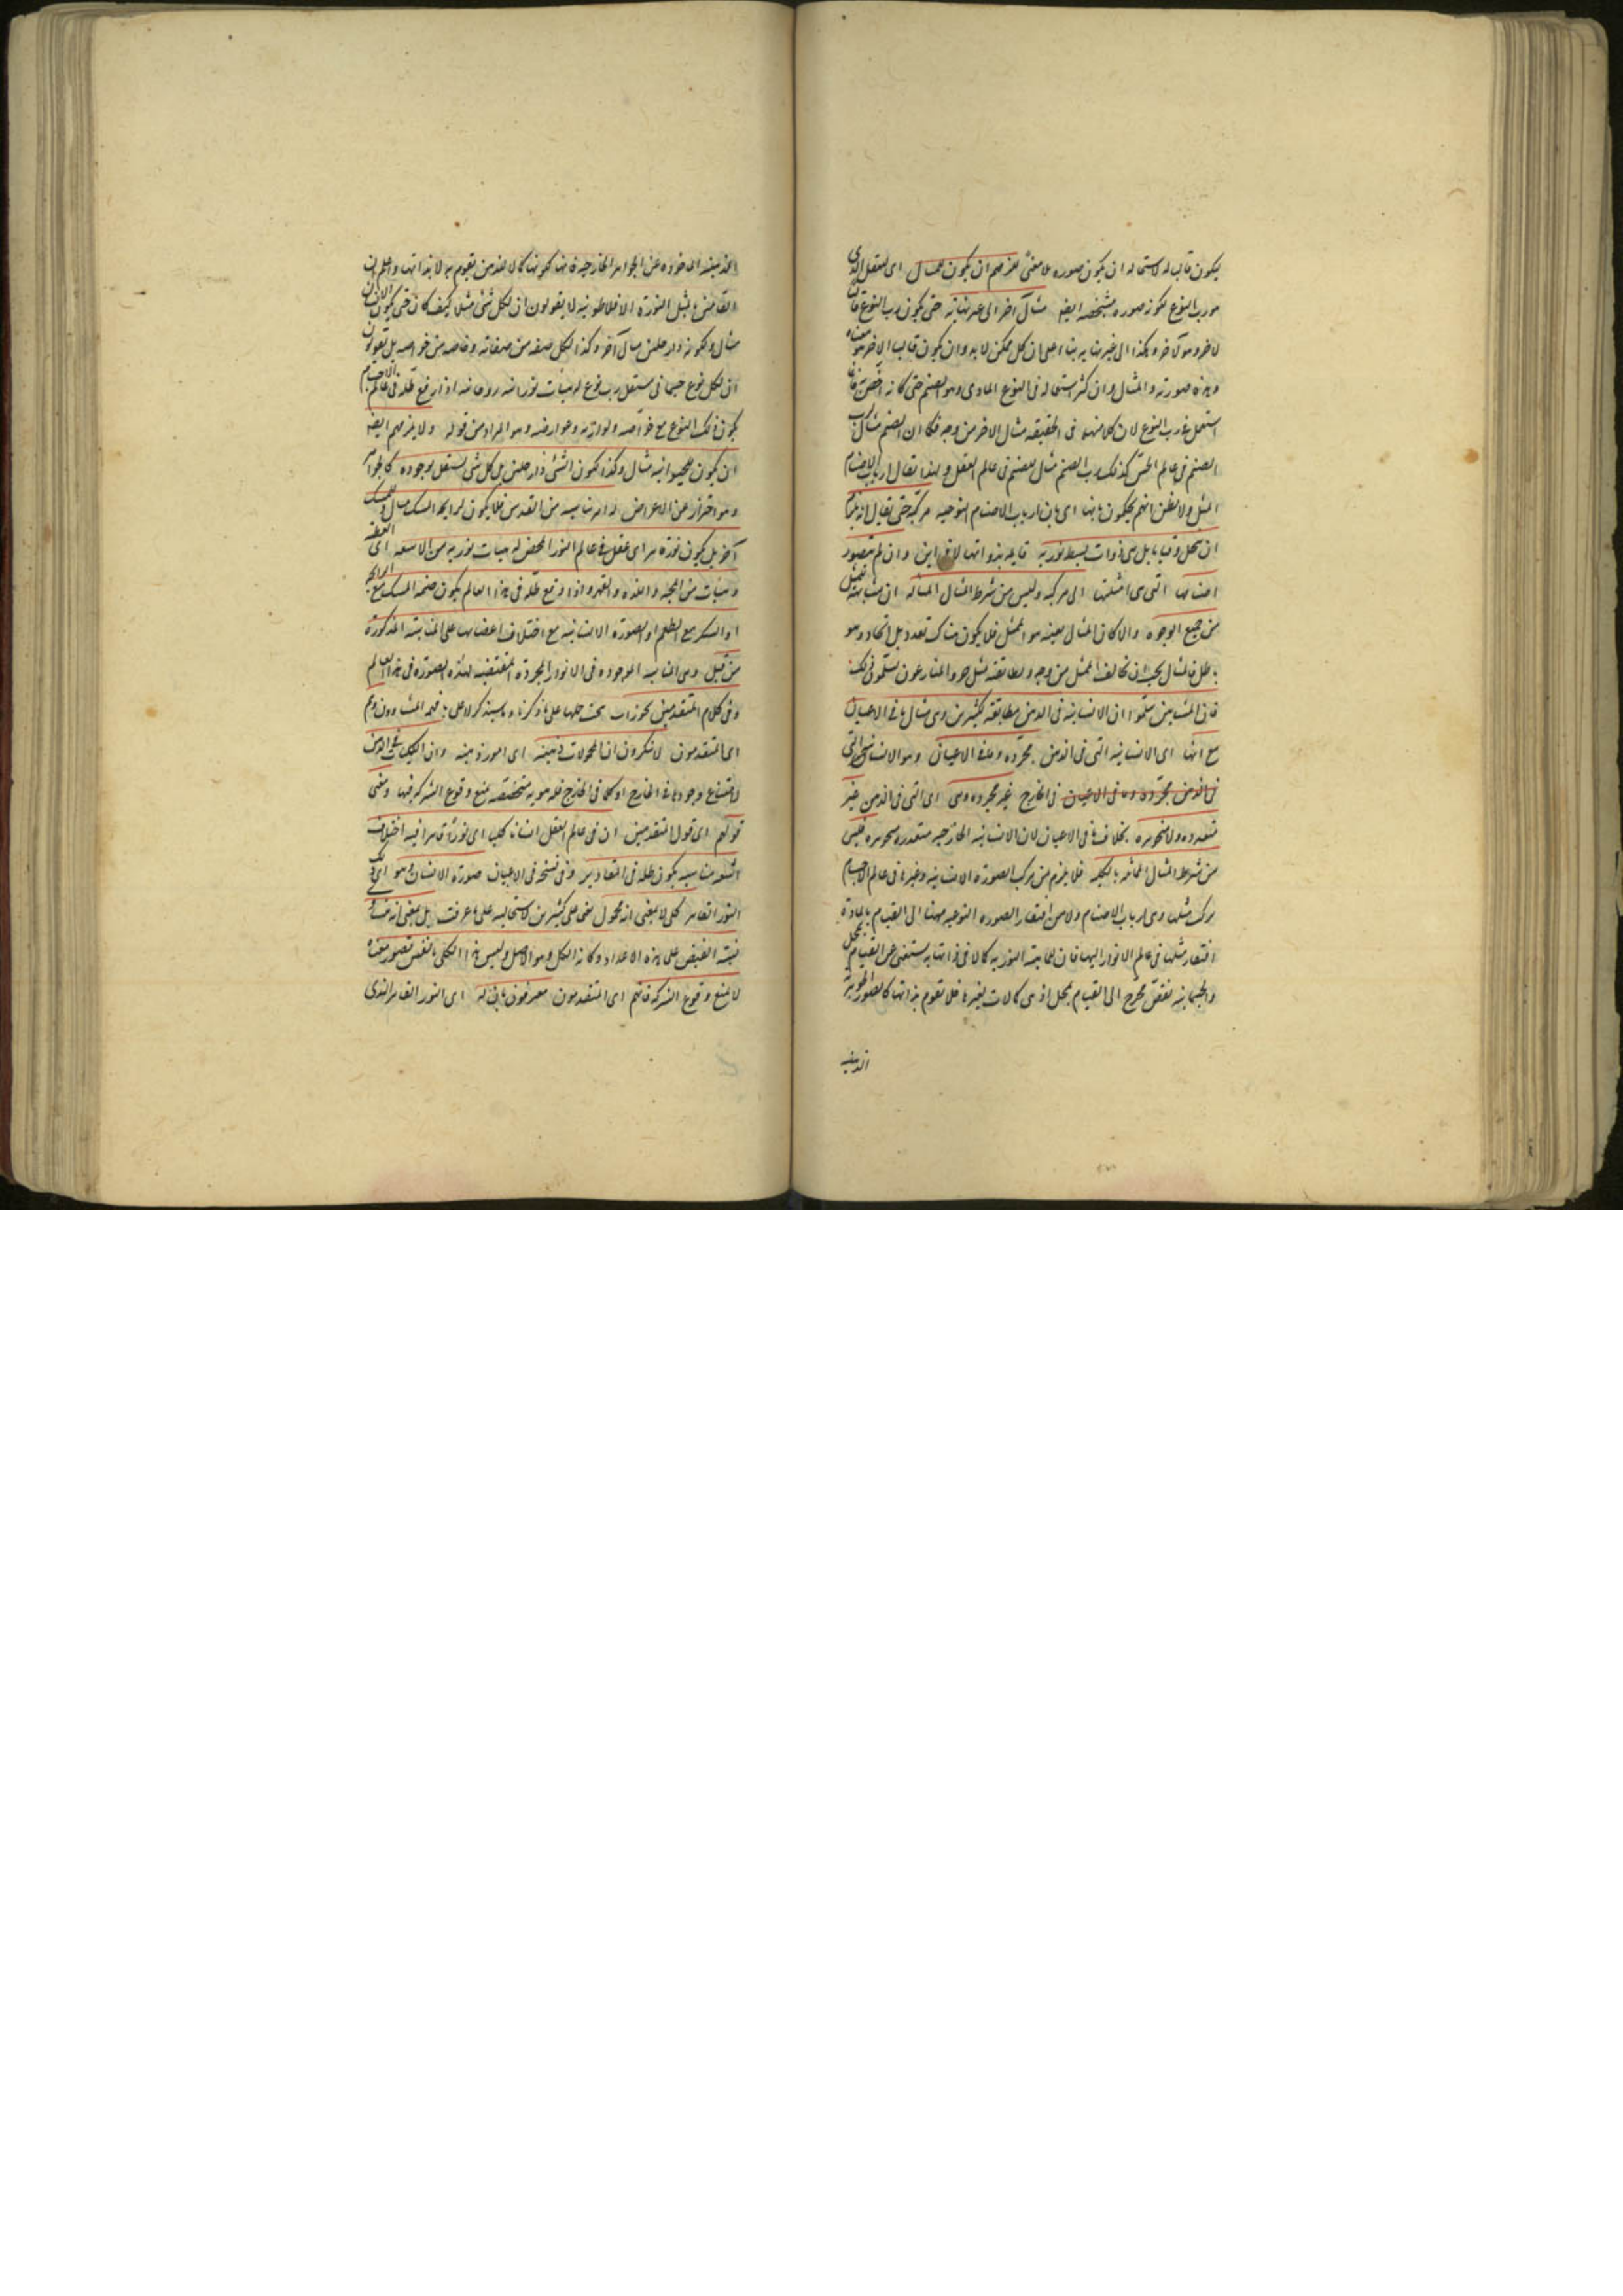 يكون قالب له لاستحالة ان يكون صورة بلا معنى يلزمهم ان يكون للمثال اى للعقل الذى
هو رب النوع لكونه صورة مشخصة ايضا مثال آخر الى غير نهاية حتى يكون رب النوع
لآخر وهو لآخر وهكذا الى غير نهاية بناء على ان كل ممكن لا بد وان يكون قالب الآخر هو معناه
وهذه صورته والمثال وان كثر استعماله فى النوع المادى وهو الصنم حتى كانه اختص
استعمل فى رب النوع لان كلا منهما فى الحقيقة مثال الآخر من وجه فكما ان الصنم مثال لرب
الصنم فى عالم الحس كذلك رب الصنم مثال للصنم فى عالم العقل ولهذا يقال لارباب الاصنام
المثل ولا تظن انهم يحكمون بانها اى بان ارباب الاصنام النوعية مركبة حتى يقال انه يلزم
ان ينحل وقتا ما بل هى ذوات بسيطة نورية قائمة بذواتها لا فى اين وان لم يتصور
اصنامها التى هى امثلتها الا مركبة وليس من شرط المثال المماثلة
من جميع الوجوه والا كان المثال بعينه هو الممثل فلا يكون هناك تعدد بل اتحاد وهو
باطل فالمثال يجب ان يخالف الممثل من وجه ويطابقه من وجه والمنازعون يسلمون ذلك
فان المشائين سلموا ان الانسانية فى الذهن مطابقة لكثيرين وهى مثال ما فى الاعيان
مع انها اى الانسانية التى فى الذهن مجردة وما فى الاعيان وهو الانسانية التى
فى الذهن مجردة وما فى الاعيان فى الخارج غير مجردة وهى اى التى فى الذهن غير
متقدرة ولا متجوهرة بخلاف ما فى الاعيان لان الانسانية الخارجية متقدرة متجوهرة فليس
من شرط المثال المماثلة بالكلية فلا يلزم من تركب الصورة الانسانية وغيرها فى عالم الاجسام
تركب مثلها وهى ارباب الاصنام ولا من افتقار الصورة النوعية ههنا الى القيام بالمادة
افتقار مثلها فى عالم الانوار اليها فان للماهية النورية كمالا فى ذاتها به تستغنى عن القيام بمحل
والجسمانية نقص يحوج الى القيام بمحل اذ هى كمالات لغيرها فلا تقوم بذاتها كالصور الجوهرية
الذهنية
الذهنية الماخوذة عن الجواهر الخارجية فانها لكونها كمالا للذهن تقوم به لا بذاتها واعلم ان
القائلين بالمثل النورية الافلاطونية لا يقولون ان لكل شئ مثلا كيف كان حتى يكون للانسان
مثال ولكونه ذا رجلين مثال آخر وكذا لكل صفة من صفاته وخاصة من خواصه بل يقولون
ان لكل نوع جسمانى مستقل رب نوع له هيئات نورانية روحانية اذا وقع ظله فى عالم الاجسام
يكون ذلك النوع مع خواصه ولوازمه وعوارضه وهو المراد من قوله ولا يلزمهم ايضا
ان يكون للحيوانية مثال وكذا لكون الشئ ذا رجلين بل كل شئ يستقل بوجوده كالجواهر
وهو احتراز عن الاعراض له امر يناسبه من القدس فلا يكون لرايحة المسك مثال وللمسك
آخر بل يكون نور قاهر اى عقل فى عالم النور المحض له هيئات نورية من الاشعة اى العقلية
وهيئات من المحبة واللذة والقهر واذا وقع ظله فى هذا العالم يكون صنمه المسك مع الرايحة
او السكر مع الطعم او الصورة الانسانية مع اختلاف اعضائها على المناسبة المذكورة
من قبل وهى المناسبة الموجودة فى الانوار المجردة المقتضية لهذه الصورة فى هذا العالم
وفى كلام المتقدمين تجوزات يجب حملها على ما ذكرناه وسيذكر لا على ما فهمه المشاؤون وهم
اى المتقدمون لا ينكرون ان المحمولات ذهنية اى امور ذهنية وان الكليات فى الذهن
لامتناع وجودها فى الخارج اذ كل ما فى الخارج فله هوية متخصصة تمنع وقوع الشركة فيها ومعنى
قولهم اى قول المتقدمين ان فى عالم العقل انسانا كليا اى نورا قاهرا فيه اختلاف
اشعة متناسبة يكون ظله فى المقادير وفى نسخة فى الاعيان صورة الانسان وهو اى ذلك
النور القاهر كلى لا بمعنى انه محمول على كثيرين لاستحالته على ما عرفت بل بمعنى انه متساوى
نسبة الفيض على هذه الاعداد وكانه الكل وهو الاصل وليس هذا الكلى ما نفس تصور معناه
لا يمنع وقوع الشركة فانهم اى المتقدمون معترفون بان له اى النور القاهر الذى